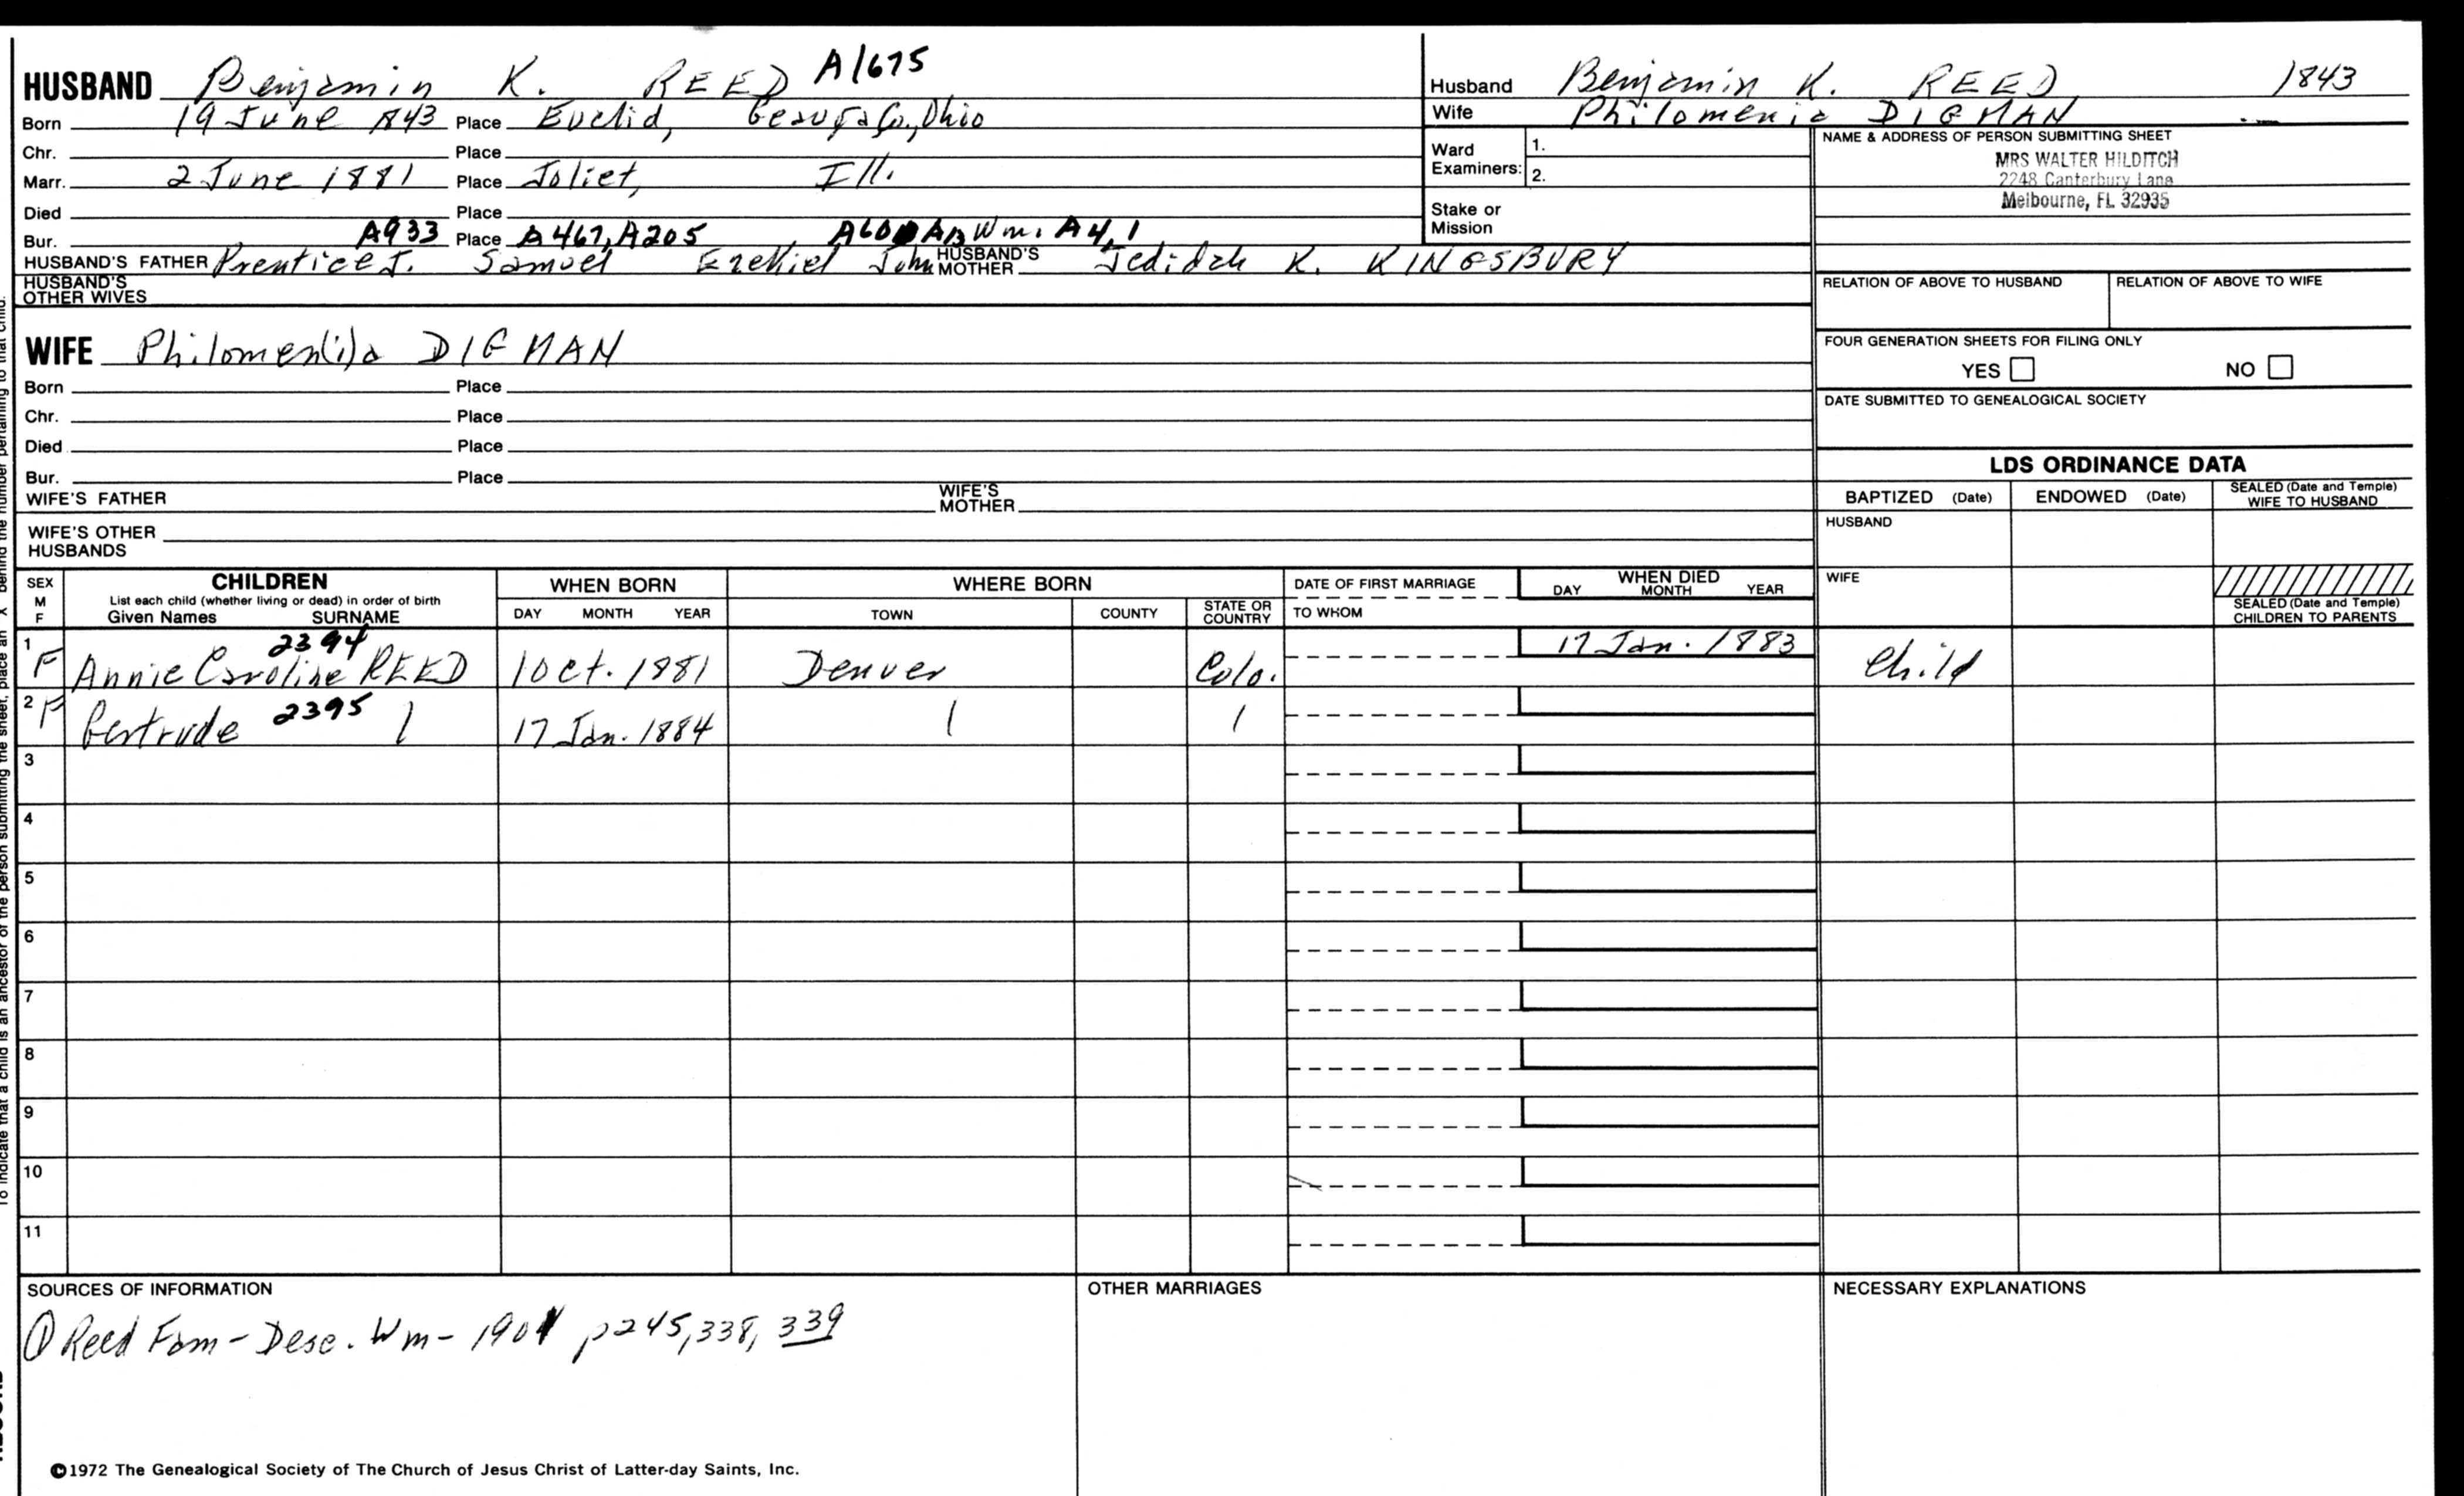 HUSBAND Benjamin K. REED A1675
Born 19 June 1843 Place Euclid, Geauga Co., Ohio
Chr. Place
Marr. 2 June 1881 Place Joliet, Ill.
Died Place
Bur. A933 Place A467, A205 A60 A13 Wm. A4, 1
HUSBAND'S FATHER Prentice J. Samuel Ezekiel John HUSBAND'S MOTHER Jedidah K. KINGSBURY
HUSBAND'S OTHER WIVES
Husband Benjamin K. REED 1843
Wife Philomenia DIGMAN
Ward Examiners: 1.
2.
Stake or Mission
NAME & ADDRESS OF PERSON SUBMITTING SHEET
MRS WALTER HILDITCH
2248 Canterbury Lane
Melbourne, FL 32935
RELATION OF ABOVE TO HUSBAND RELATION OF ABOVE TO WIFE
FOUR GENERATION SHEETS FOR FILING ONLY
YES NO
DATE SUBMITTED TO GENEALOGICAL SOCIETY
WIFE Philomen(i)a DIGMAN
Born Place
Chr. Place
Died Place
Bur. Place
WIFE'S FATHER WIFE'S MOTHER
WIFE'S OTHER HUSBANDS
LDS ORDINANCE DATA
BAPTIZED (Date) ENDOWED (Date) SEALED (Date and Temple) WIFE TO HUSBAND
HUSBAND
WIFE
SEALED (Date and Temple) CHILDREN TO PARENTS
SEX M F
CHILDREN
List each child (whether living or dead) in order of birth
Given Names SURNAME
WHEN BORN
DAY MONTH YEAR
WHERE BORN
TOWN COUNTY STATE OR COUNTRY
DATE OF FIRST MARRIAGE
TO WHOM
WHEN DIED
DAY MONTH YEAR
1 F Annie Caroline REED 2394 1 Oct. 1881 Denver Colo. 17 Jan. 1883 Child
2 F Gertrude 2395 17 Jan. 1884
3
4
5
6
7
8
9
10
11
SOURCES OF INFORMATION
① Reed Fam - Desc. Wm - 1901 p245, 338, 339
OTHER MARRIAGES
NECESSARY EXPLANATIONS
©1972 The Genealogical Society of The Church of Jesus Christ of Latter-day Saints, Inc.
To indicate that a child is an ancestor of the person submitting the sheet, place an "X" behind the number pertaining to that child.